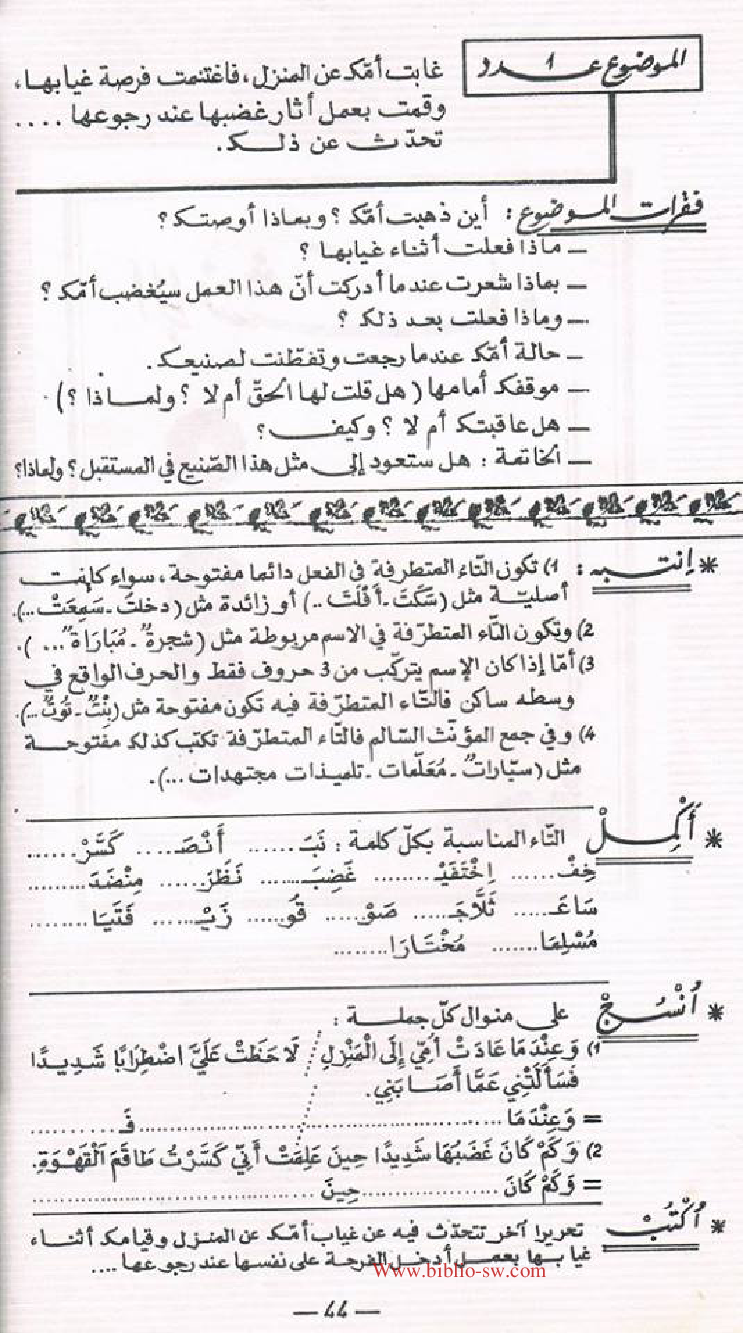 الموضوع عـــدد 1
غابت أمّك عن المنزل، فاغتنمت فرصة غيابها،
وقمت بعمل أثار غضبها عند رجوعها ....
تحدّث عن ذلــك.
فقرات الموضوع : أين ذهبت أمّك ؟ وبماذا أوصتك ؟
ـ ماذا فعلت أثناء غيابها ؟
ـ بماذا شعرت عندما أدركت أنّ هذا العمل سيُغضب أمّك ؟
ـ وماذا فعلت بعد ذلك ؟
ـ حالة أمّك عندما رجعت وتفطّنت لصنيعك.
ـ موقفك أمامها ( هل قلت لها الحقّ أم لا ؟ ولمــاذا ؟)
ـ هل عاقبتك أم لا ؟ وكيف ؟
ـ الخاتمة : هل ستعود إلى مثل هذا الصّنيع في المستقبل ؟ ولماذا؟
* اِنتبه : 1) تكون التّاء المتطرفة في الفعل دائما مفتوحة ، سواء كانت
أصليّـة مثل (سَكَتَ ـ أَفْلَتَ ..) أو زائدة مثل (دخلتَ ـ سَمِعَتْ ...).
2) وتكون التّاء المتطرّفة في الاسم مربوطة مثل (شجرةٌ ـ مُبَارَاةٌ ... ).
3) أمّا إذا كان الإسم يتركّب من 3 حروف فقط والحرف الواقع في
وسطه ساكن فالتّاء المتطرّفة فيه تكون مفتوحة مثل (بِنْتٌ ـ تُوتٌ ...).
4) وفي جمع المؤنّث السّالم فالتّاء المتطرّفة تكتب كذلك مفتوحــة
مثل (سيّاراتٌ ـ مُعَلّمات ـ تلميذات مجتهدات ...).
* أَكْمِــلْ التّاء المناسبة بكلّ كلمة : نَبَـ ...... أَنْصَـ ..... كَسَّرْ ......
خِفْـ ...... اِخْتَفَيْـ ........ غَضِبَـ ........ نَظَرَ ...... مِنْضَدَ .........
سَاعَـ ..... ثَلَّاجَـ ..... صَوْ ..... قَو ..... زَيْـ ...... فَتَيَا ........
مُسْلِمَا ....... مُخْتَارَا ........
* اُنْسُــجْ على منوال كلّ جملــة :
1) وَعِنْدَمَا عَادَتْ أُمِّي إِلَى الْمَنْزِلِ لَاحَظَتْ عَلَيَّ اضْطِرَابًا شَدِيدًا
فَسَأَلَتْنِي عَمَّا أَصَـابَنِي.
= وَعِنْدَمَا ............................................ فَـ ..........
2) وَكَمْ كَانَ غَضَبُهَا شَدِيدًا حِينَ عَلِمَتْ أَنِّي كَسَّرْتُ طَاقَمَ الْقَهْوَةِ.
= وَكَمْ كَانَ .................. حِينَ ....................................
* اُكْتُبْ تحريرا آخر تتحدّث فيه عن غياب أمّك عن المنزل وقيامك أثنــاء
غيابها بعمــل أدخل الفرحة على نفسها عند رجوعها ....
www.biblio-sw.com
— 44 —